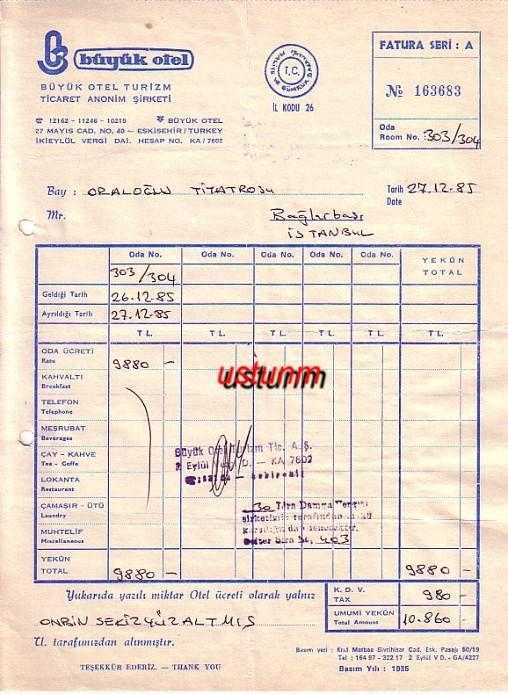 büyük otel
BÜYÜK OTEL TURİZM
TİCARET ANONİM ŞİRKETİ
12162 - 11246 - 10215 BÜYÜK OTEL
27 MAYIS CAD. NO. 40 — ESKİŞEHİR/TURKEY
İKİEYLÜL VERGİ DAİ. HESAP NO. KA/7802
T.C.
İL KODU 26
FATURA SERİ : A
№ 163683
Oda
Room No. 303/304
Bay : ORALOĞLU TİYATROSU
Mr.
Tarih 27.12.85
Date
Bağlarbaşı
İSTANBUL
Oda No. Oda No. Oda No. Oda No. Oda No. YEKÛN
TOTAL
303/304
Geldiği Tarih 26.12.85
Ayrıldığı Tarih 27.12.85
TL. TL. TL. TL. TL. TL.
ODA ÜCRETİ
Rate 9880 —
KAHVALTI
Breakfast
ustunm
TELEFON
Telephone
MEŞRUBAT
Beverages
ÇAY - KAHVE
Tea - Coffe
Büyük Otel Turizm Tic. A. Ş.
2 Eylül V. D. — KA 7802
LOKANTA
Restaurant
ÇAMAŞIR - ÜTÜ
Laundry
30 Lira Damga Vergisi
şirketimiz tarafından
403
MUHTELİF
Miscellaneous
YEKÛN
TOTAL 9880 — 9880 —
Yukarıda yazılı miktar Otel ücreti olarak yalnız
K. D. V.
TAX 980 —
ONBİN SEKİZYÜZALTMIŞ
UMUMİ YEKÛN
Total Amount 10.860 —
TL. tarafımızdan alınmıştır.
TEŞEKKÜR EDERİZ. — THANK YOU
Basım yeri : Kral Matbaa Sivrihisar Cad. Esk. Pasajı 50/19
Tel : 164 97 - 322 17 2 Eylül V D. - GA/4227
Basım Yılı : 1985